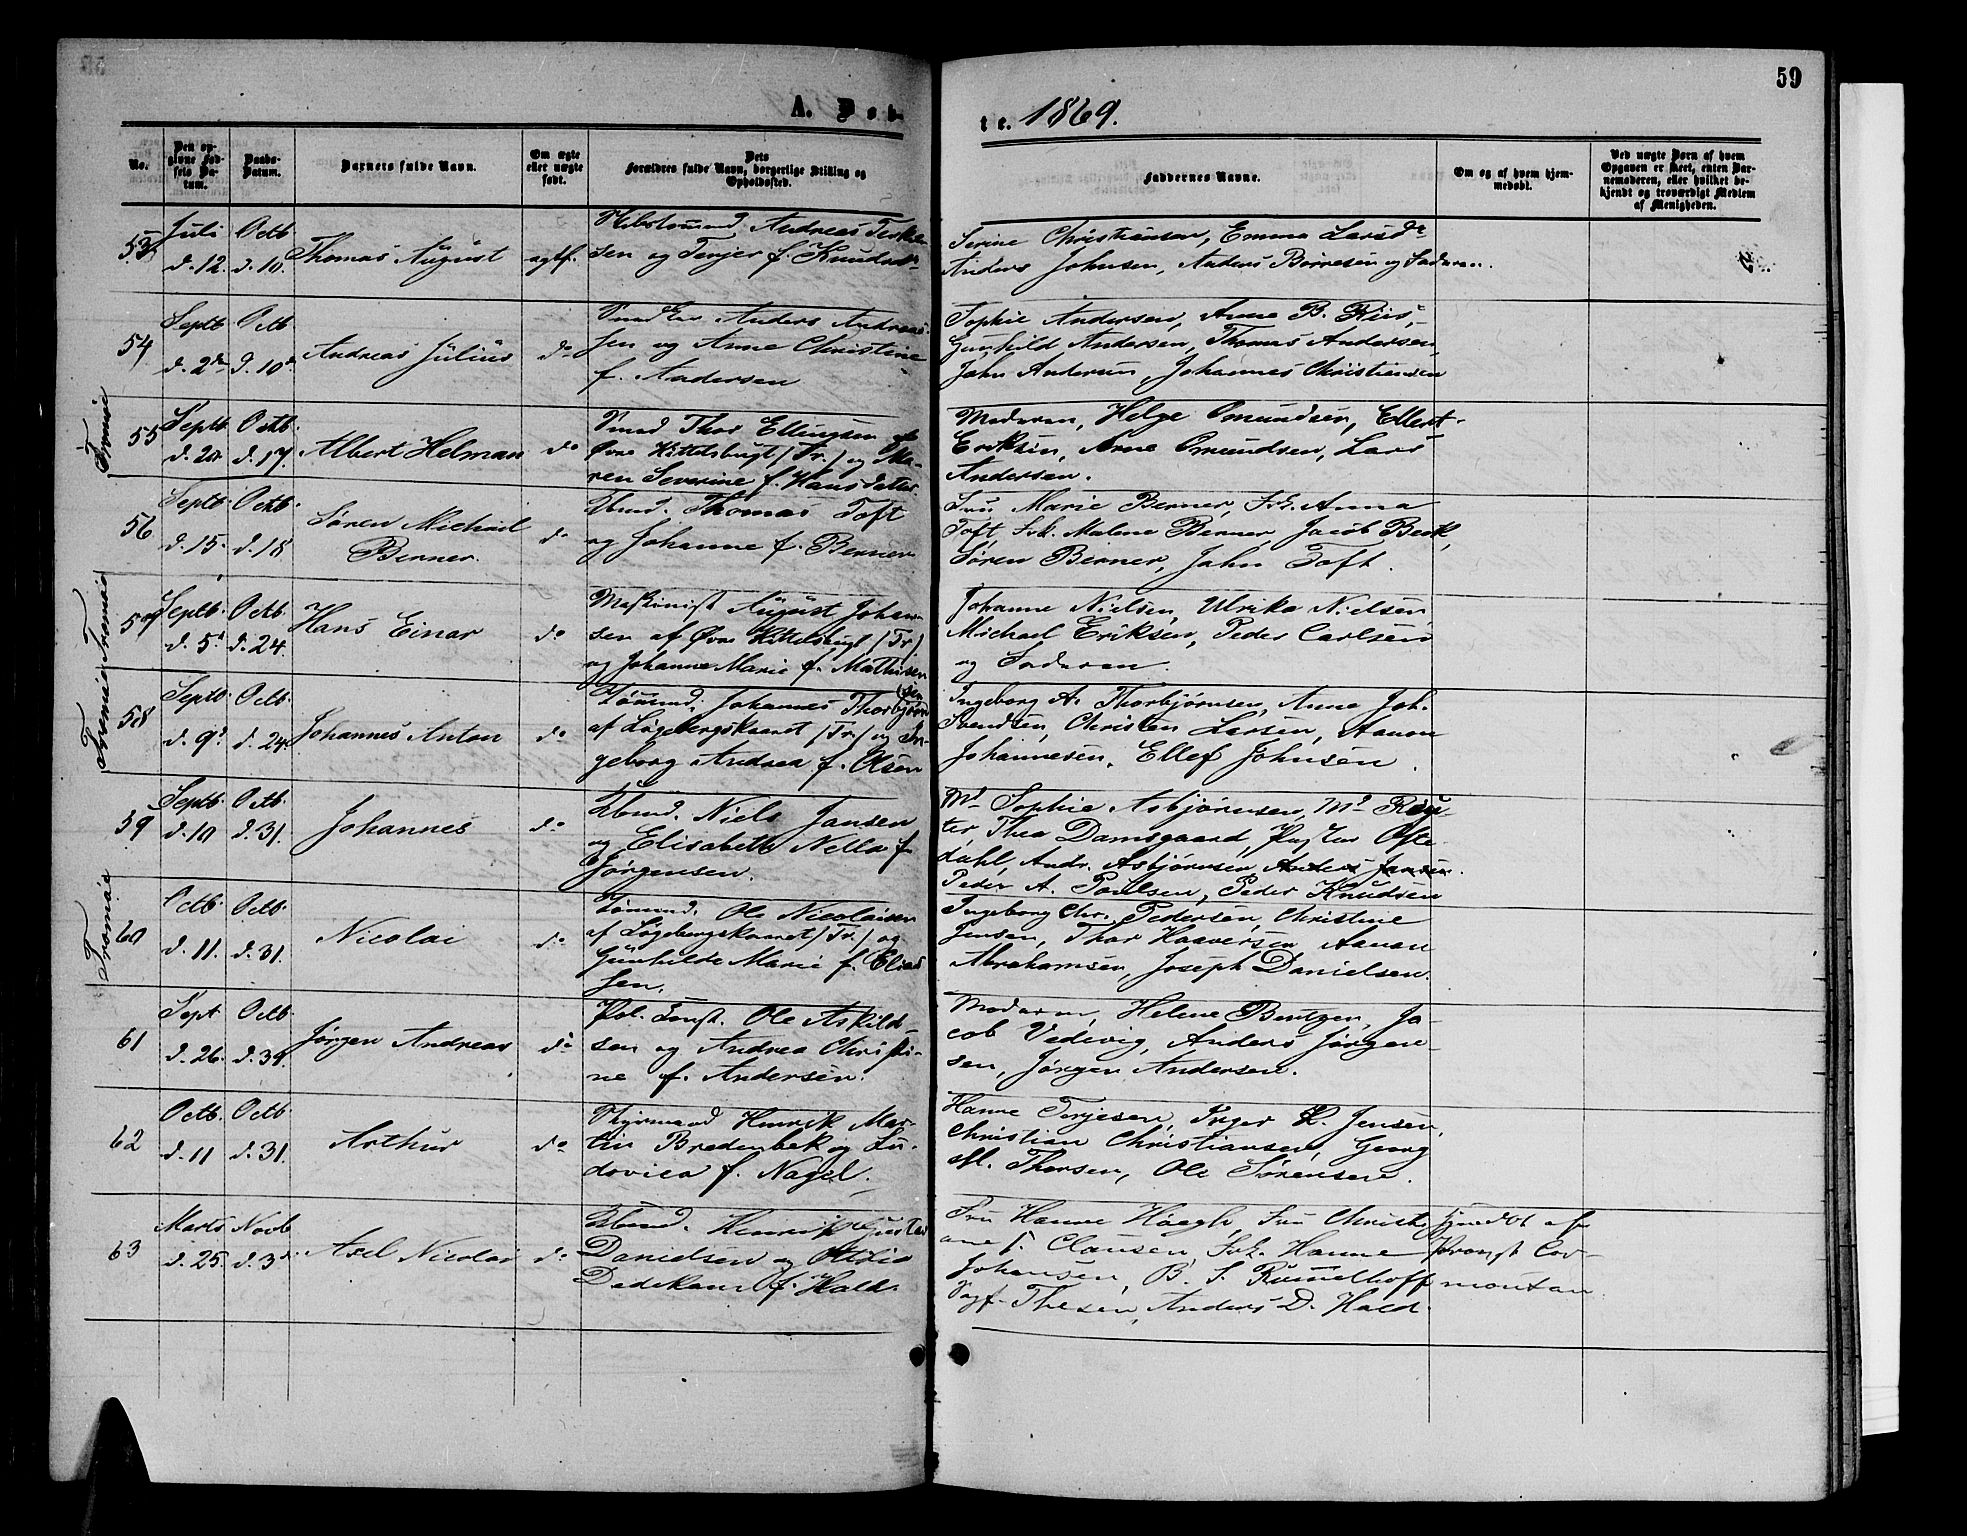 59
A. Døbte. 1869.
No.
Den opgivne Fødsels Datum.
Daabs-Datum.
Barnets fulde Navn.
Om ægte eller uægte født.
Dets Forældres fulde Navn, borgerlige Stilling og Opholdssted.
Faddernes Navne.
Om og af hvem hjemmedøbt.
Ved uægte Børn af hvem Opgaven er skeet, enten Barnemoderen, eller hvilket bekjendt og troværdigt Medlem af Menigheden.
53
Juli d. 12.
Octb d. 10.
Thomas August
ægtf.
Andreas Terkel-
sen og Terjer f. Knudsd.
Serine Christiansen, Emma Larsdr
Anders Johnsen, Anders Børresen og Faderen.
54
Septb d. 2den
Octb d. 10de
Andreas Julius
do
Anders Andreas-
sen og Anne Christine
f. Andersen
Sophie Andersen, Anne B. Riis,
Gunhild Andersen, Thomas Andersen,
John Andersen, Johannes Christiansen
Tromø
55
Septb d. 20
Octb. d. 17.
Albert Helman
do
Thor Ellingsen af
Øvre Kittelsbugt (Tr.) og Ma-
ren Severine f. Hansdatter.
Moderen, Helge Omundsen, Ellert
Eriksen, Arne Omundsen, Lars
Andersen.
56
Septb. d. 15.
Octb. d. 18.
Søren Michael
Berner.
do
Skbmd. Thomas Toft
og Johanne f. Berner
Fru Marie Berner, Frk. Anna
Toft, Frk. Malene Berner, Jacob Beck,
Søren Berner, John Toft.
Tromøe
57
Septb. d. 5te
Octb d. 24.
Hans Einar
do
Maskinist August Johan-
sen af Øvre Kittelsbugt (Tr.)
og Johanne Marie f. Mathisen
Johanne Nielsen, Ulrika Nielsen
Michael Eriksen, Peder Carlsen
og Faderen.
Tromøe
58
Septb. d. 9de
Octb. d. 24
Johannes Anton
do
Tømmd. Johannes Thorbjørn-
(sen
af Løgebergskaaret (Tr.) og In-
geborg Andrea f. Olsen
Ingeborg A. Thorbjørnsen, Anne Joh.
Svendsen, Christen Larsen, Aanon
Johannesen, Ellef Johnsen.
59
Septb. d. 10
Octb. d. 31.
Johannes
do
Skbmd. Niels Jansen
og Elisabeth Nella f.
Jørgensen.
Md. Sophie Asbjørnsen, Md. Reu-
ter Thea Damsgaard, Pastor Ofte-
dahl, Andr. Asbjørnsen Anders Jansen.
Peder A. Poulsen, Peder Knudsen
Tromøe
60
Octb. d. 11.
Octb. d. 31.
Nicolai
do
Tømmd. Ole Nicolaisen
af Løgebergskaaret (Tr.) og
Gunhilde Marie f. Elias
sen.
Ingeborg Chr. Pedersen, Christine
Jensen, Thor Haaversen, Aanon
Abrahamsen, Joseph Danielsen.
61
Sept d. 26.
Octb. d. 31.
Jørgen Andreas
do
Pol. Const. Ole Askild-
sen og Andrea Christi-
ne f. Andersen.
Moderen, Helene Bentzen, Ja-
cob Vedivig, Anders Jørgen-
sen, Jørgen Andersen.
62
Octb. d. 11
Octb. d. 31.
Arthur
do
Styrmand Henrik Mar-
tin Bredenbek og Lu-
dovica f. Nagel.
Hanne Terjesen, Inger L. Jensen,
Christian Christiansen, Georg
M. Thorsen, Ole Sørensen.
63
Marts d. 25.
Novb d. 3
Axel Nicolai
do
Skbmd. Henrik Gustav
Danielsen og Otilie
Dedekam f. Hald.
Fru Hanne Høegh, Fru Christi-
ane F. Clausen, Frk. Hanne
Johansen, B. S. Rummelhoff
Thesen, Anders D. Hald.
hjmdøbt af
Provst Cor-
montan.